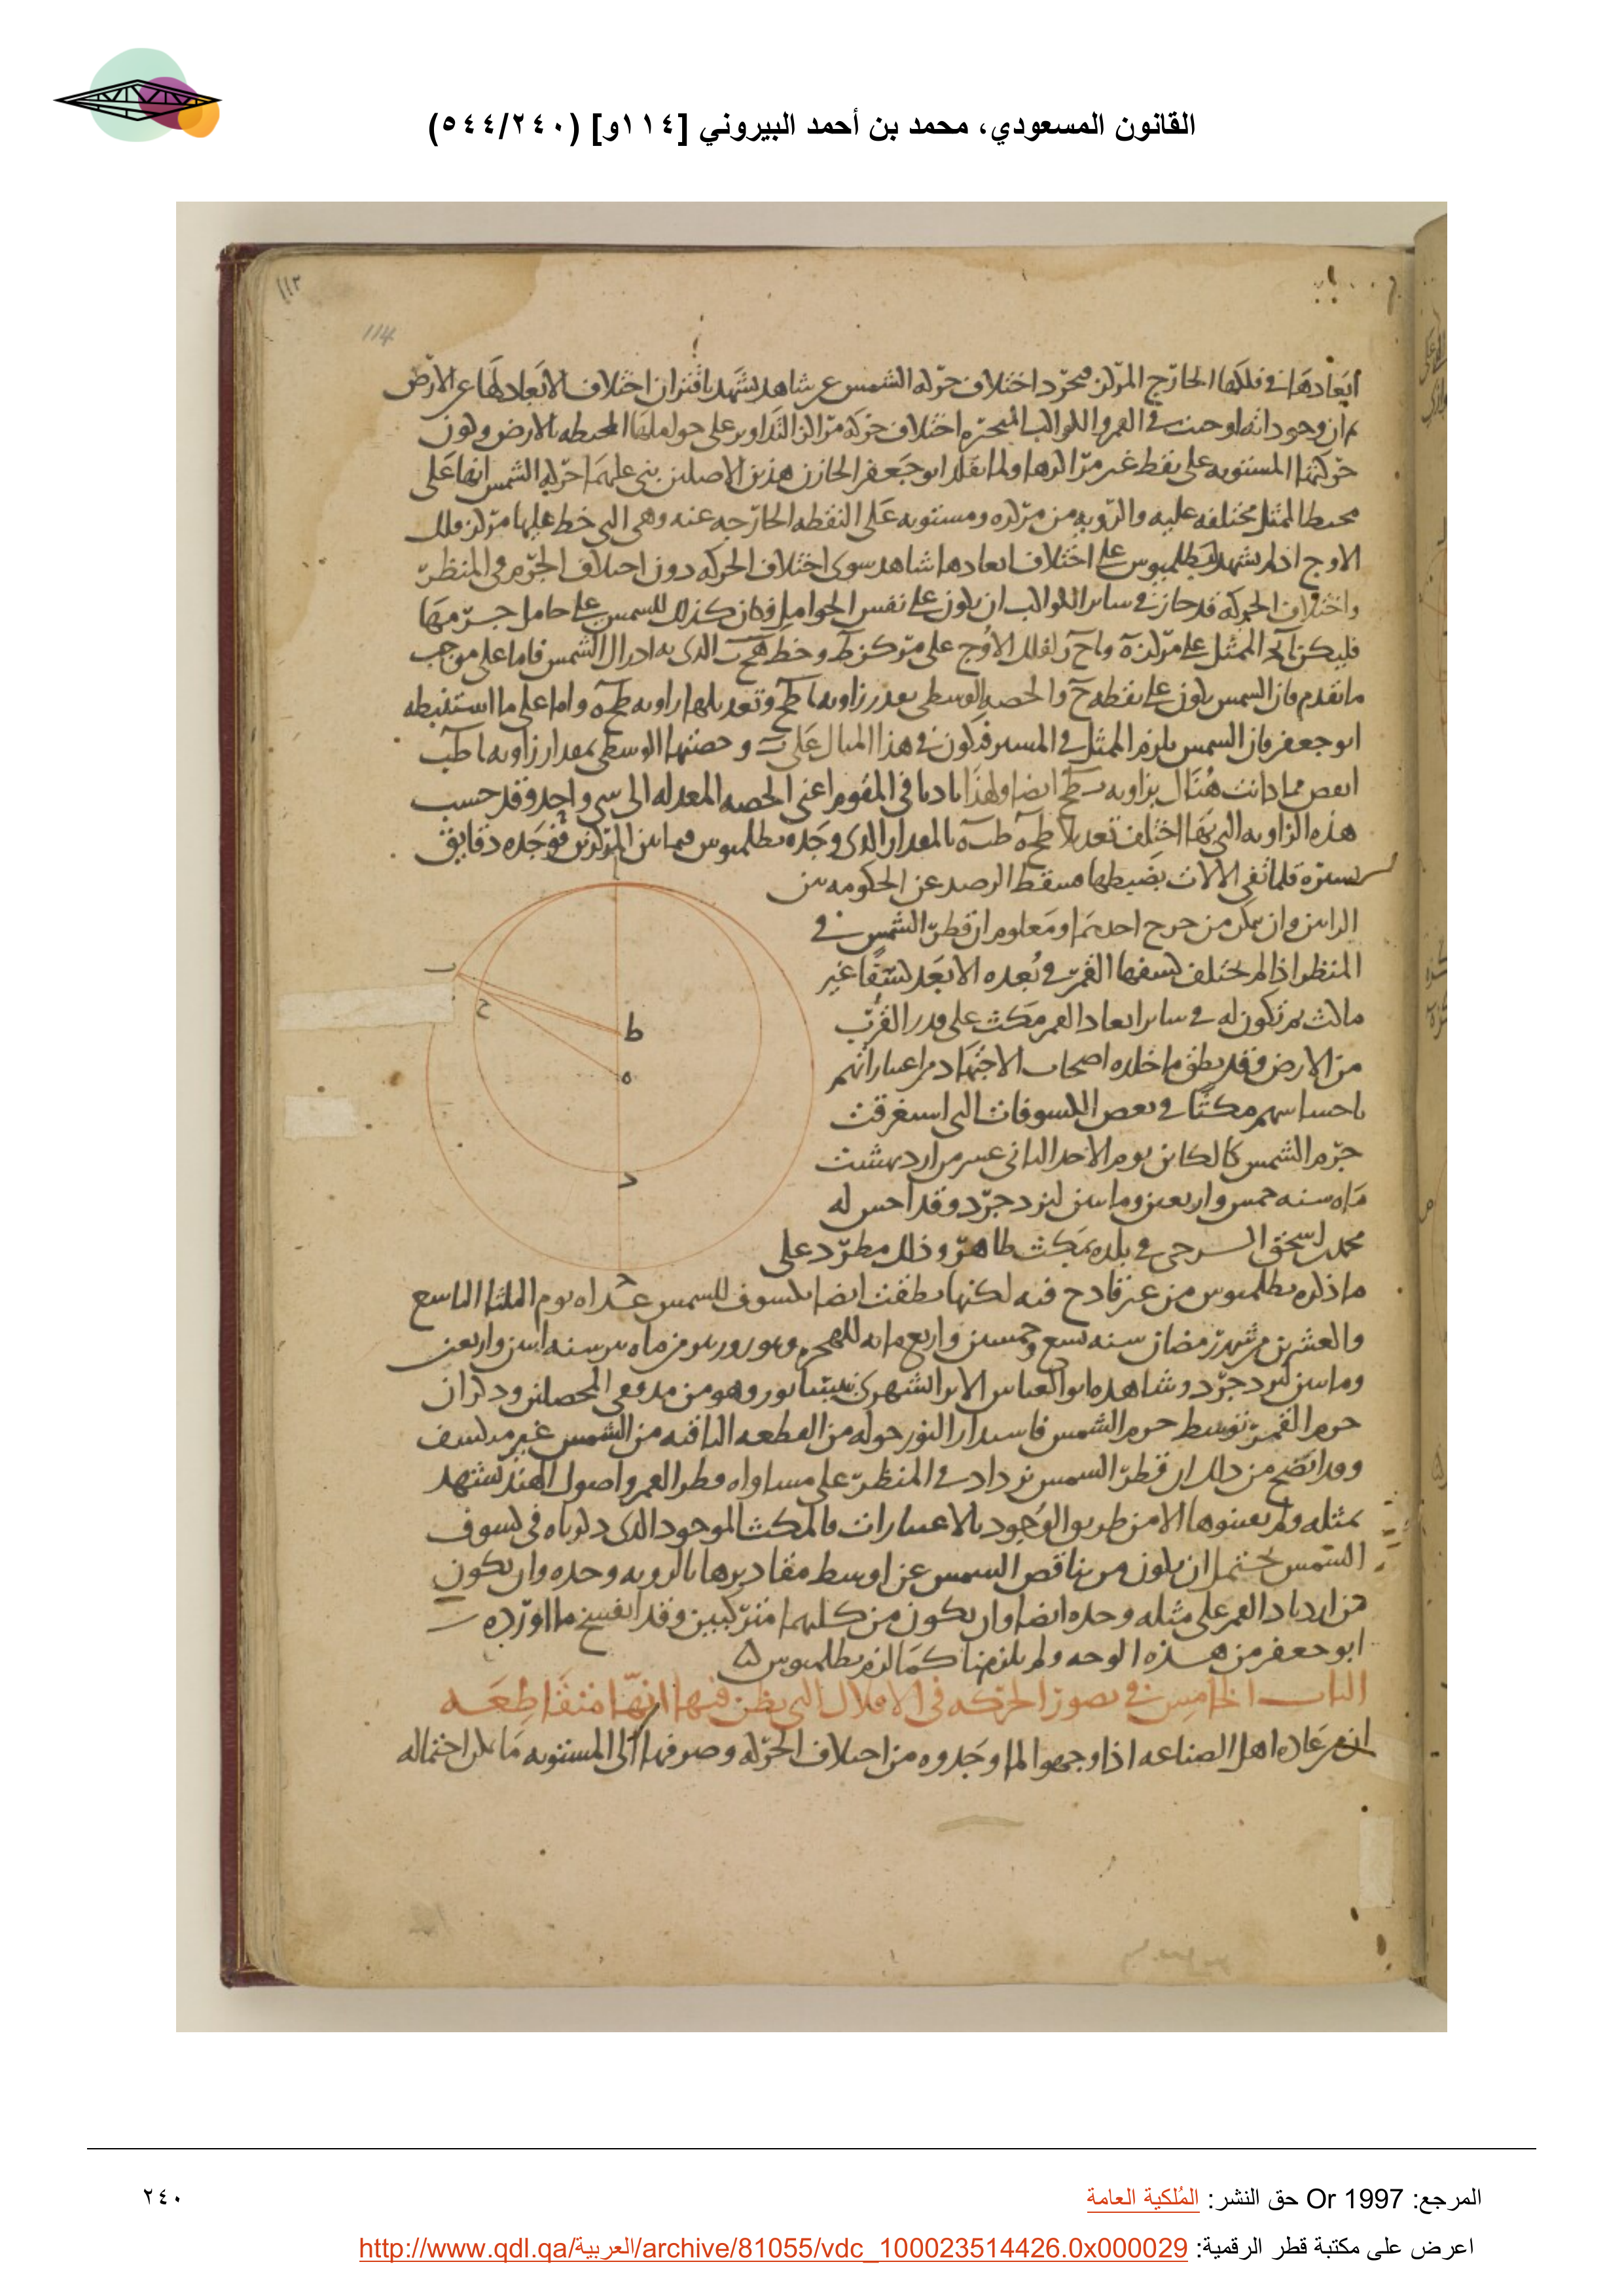 القانون المسعودي، محمد بن أحمد البيروني [١١٤و] (٥٤٤/٢٤٠)
١١٣
114
ابعادها في فلكها الخارج المركز مجرد اختلاف حركه الشمس عن شاهد يشهد باقتران اختلاف الابعاد لها عن الارض
ثم ان وجود انه اوجبت في القمر والكواكب المتحيره اختلاف حركه مراكز التداوير على حواملها المحيطه بالارض وكون
حركتها المستويه على نقط غير مراكزها ولما تقلد ابو جعفر الخازن هذين الاصلين بنى عليهما حركه الشمس انها على
محيط الممثل مختلفه عليه والرويه من مركزه ومستويه على النقطه الخارجه عنه وهي التي خط عليها مركز فلك
الاوج اذ لم يشهد لبطلميوس على اختلاف ابعادها شاهد سوى اختلاف الحركه دون اختلاف الجرم في المنظر
واختلاف الحركه قد جاز في ساير الكواكب ان يكون على نفس الحوامل فكان كذلك للشمس على حامل جرمها
فليكن ا ب ج الممثل على مركز ه و ا ح د لفلك الاوج على مركز ط وخط ه ح ب الذي به ادراك الشمس فاما على موجب
ما تقدم فان الشمس يكون على نقطه ح والحصه الوسطى بقدر زاويه ا ط ح وتعديلها زاويه ط ح ه واما على ما استنبطه
ابو جعفر فان الشمس يلزم الممثل في المسير فيكون في هذا المثال على ب وحصتها الوسطى بمقدار زاويه ا ط ب
انقص مما كانت هناك بزاويه ب ط ح ايضا ولهذا تاديا في المقوم اعني الحصه المعدله الى شي واحد وقد حسب
هذه الزاويه التي بها اختلف تعديلا ط ح ه ط ب ه بالمقدار الذي وجده بطلميوس فيما بين المركزين فوجده دقايق
يسيره قلما تفي الالات بضبطها فسقط الرصد عن الحكومه بين
الرايين وان يمكن من جرح احدهما ومعلوم ان قطر الشمس في
المنظر اذا لم يختلف كسفها القمر في بعده الابعد كسفا غير
ماكث ثم تكون له في ساير ابعاد القمر مكث على قدر القرب
من الارض وقد نطق ما خلده اصحاب الاجتهاد من اعتباراتهم
باحساسهم مكثا في بعض الكسوفات التي استغرقت
جرم الشمس كالكاين يوم الاحد الثاني عشر من ارديهشت
ماه سنه خمس واربعين ومايتين ليزدجرد وقد احس له
محمد بن اسحق السرخسي في بلده بمكث ظاهر وذلك مطرد على
ما ذكره بطلميوس من غير قادح فيه لكنها نطقت ايضا بكسوف للشمس غداه يوم الثلثا التاسع
والعشرين من شهر رمضان سنه تسع وخمسين واربع مايه للهجره وهو روز من ماه سنه اثنين واربعين
ومايتين ليزدجرد وشاهده ابو العباس الايرانشهري بنيسابور وهو من مدققي المحصلين وذكر ان
جرم القمر توسط جرم الشمس فاستدار النور حوله من القطعه الباقيه من الشمس غير منكسف
وقد اتضح من ذلك ان قطر الشمس يزداد في المنظر على مساواه قطر القمر واصول الهند تشهد
بمثله ولم يعينوها الا من طريق الوجود بالاعتبارات فالمكث الموجود الذي ذكرناه في كسوف
الشمس يحتمل ان يكون من تناقص الشمس عن اوسط مقاديرها بالرويه وحده وان يكون
من ازدياد القمر على مثله وحده ايضا وان يكون من كليهما متركبين وقد انفسخ ما اورده
ابو جعفر من هذه الوجه ولم يلزمنا كما لزم بطلميوس
الباب الخامس في تصور الحركه في الافلاك التي يظن فيها انها متقاطعه
ان من عاده اهل الصناعه اذا وجهوا لما وجدوه من اختلاف الحركه وصرفها الى المستويه ما يمكن احتماله
ا
ب
ح
ط
ه
د
ج
المرجع: Or 1997 حق النشر: المُلكية العامة
٢٤٠
اعرض على مكتبة قطر الرقمية: http://www.qdl.qa/العربية/archive/81055/vdc_100023514426.0x000029